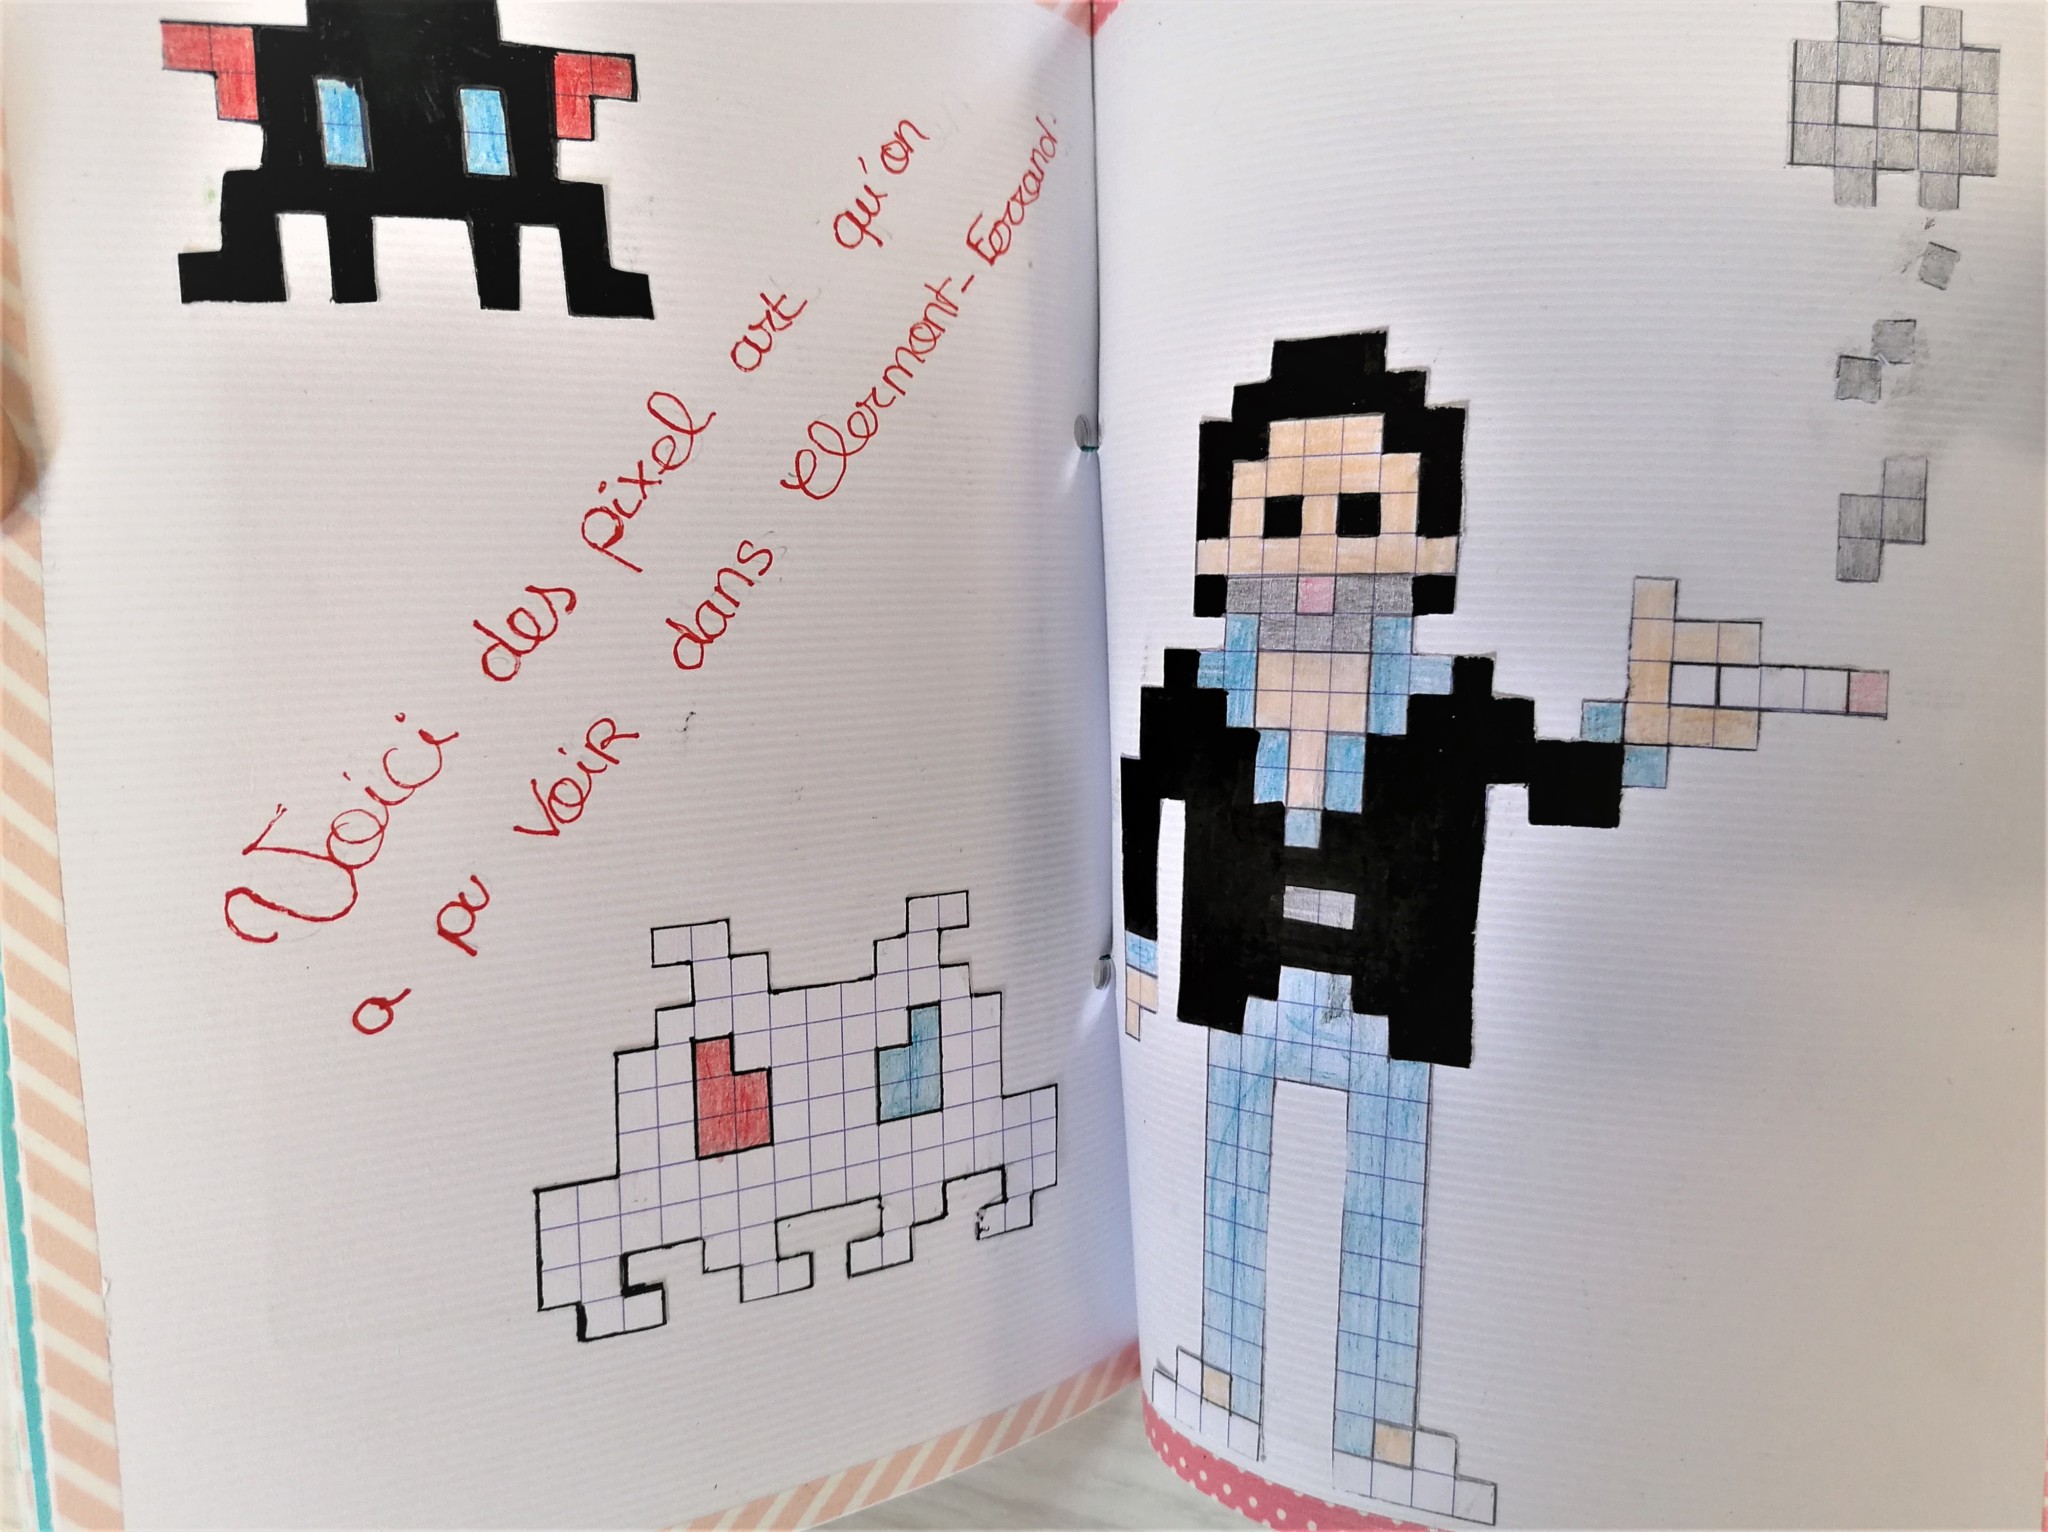 Voici des pixel art qu'on
a pu voir dans clermont-Ferrand.